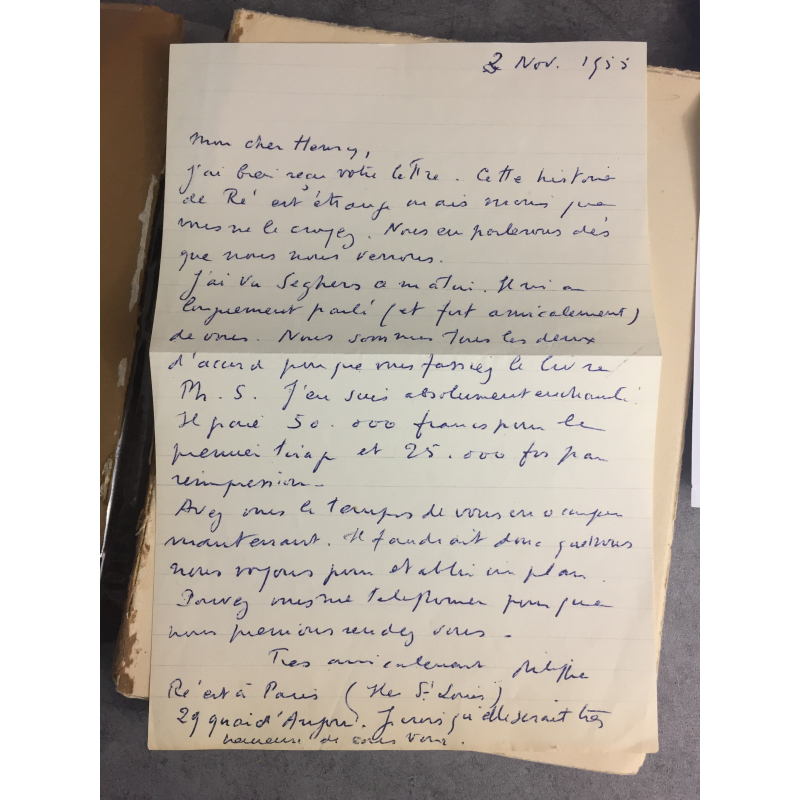 2 Nov. 1955
Mon cher Henry,
J'ai bien reçu votre lettre. Cette histoire
de Ré est étrange mais moins que
vous ne le croyez. Nous en parlerons dès
que nous nous verrons.
J'ai vu Seghers ce matin. Il m'a
longuement parlé (et fort amicalement)
de vous. Nous sommes tous les deux
d'accord pour que vous fassiez le livre
Ph. S. J'en suis absolument enchanté.
Il paie 50.000 francs pour le
premier tirage et 25.000 frs par
reimpression.
Avez vous le temps de vous en occuper
maintenant. Il faudrait donc que nous
nous voyons pour etablir un plan.
Pouvez vous me telephoner pour que
nous prenions rendez vous.
Tres amicalement Philippe
Ré est à Paris (Ile St Louis)
29 quai d'Anjou. Je crois qu'elle serait très
heureuse de vous voir.